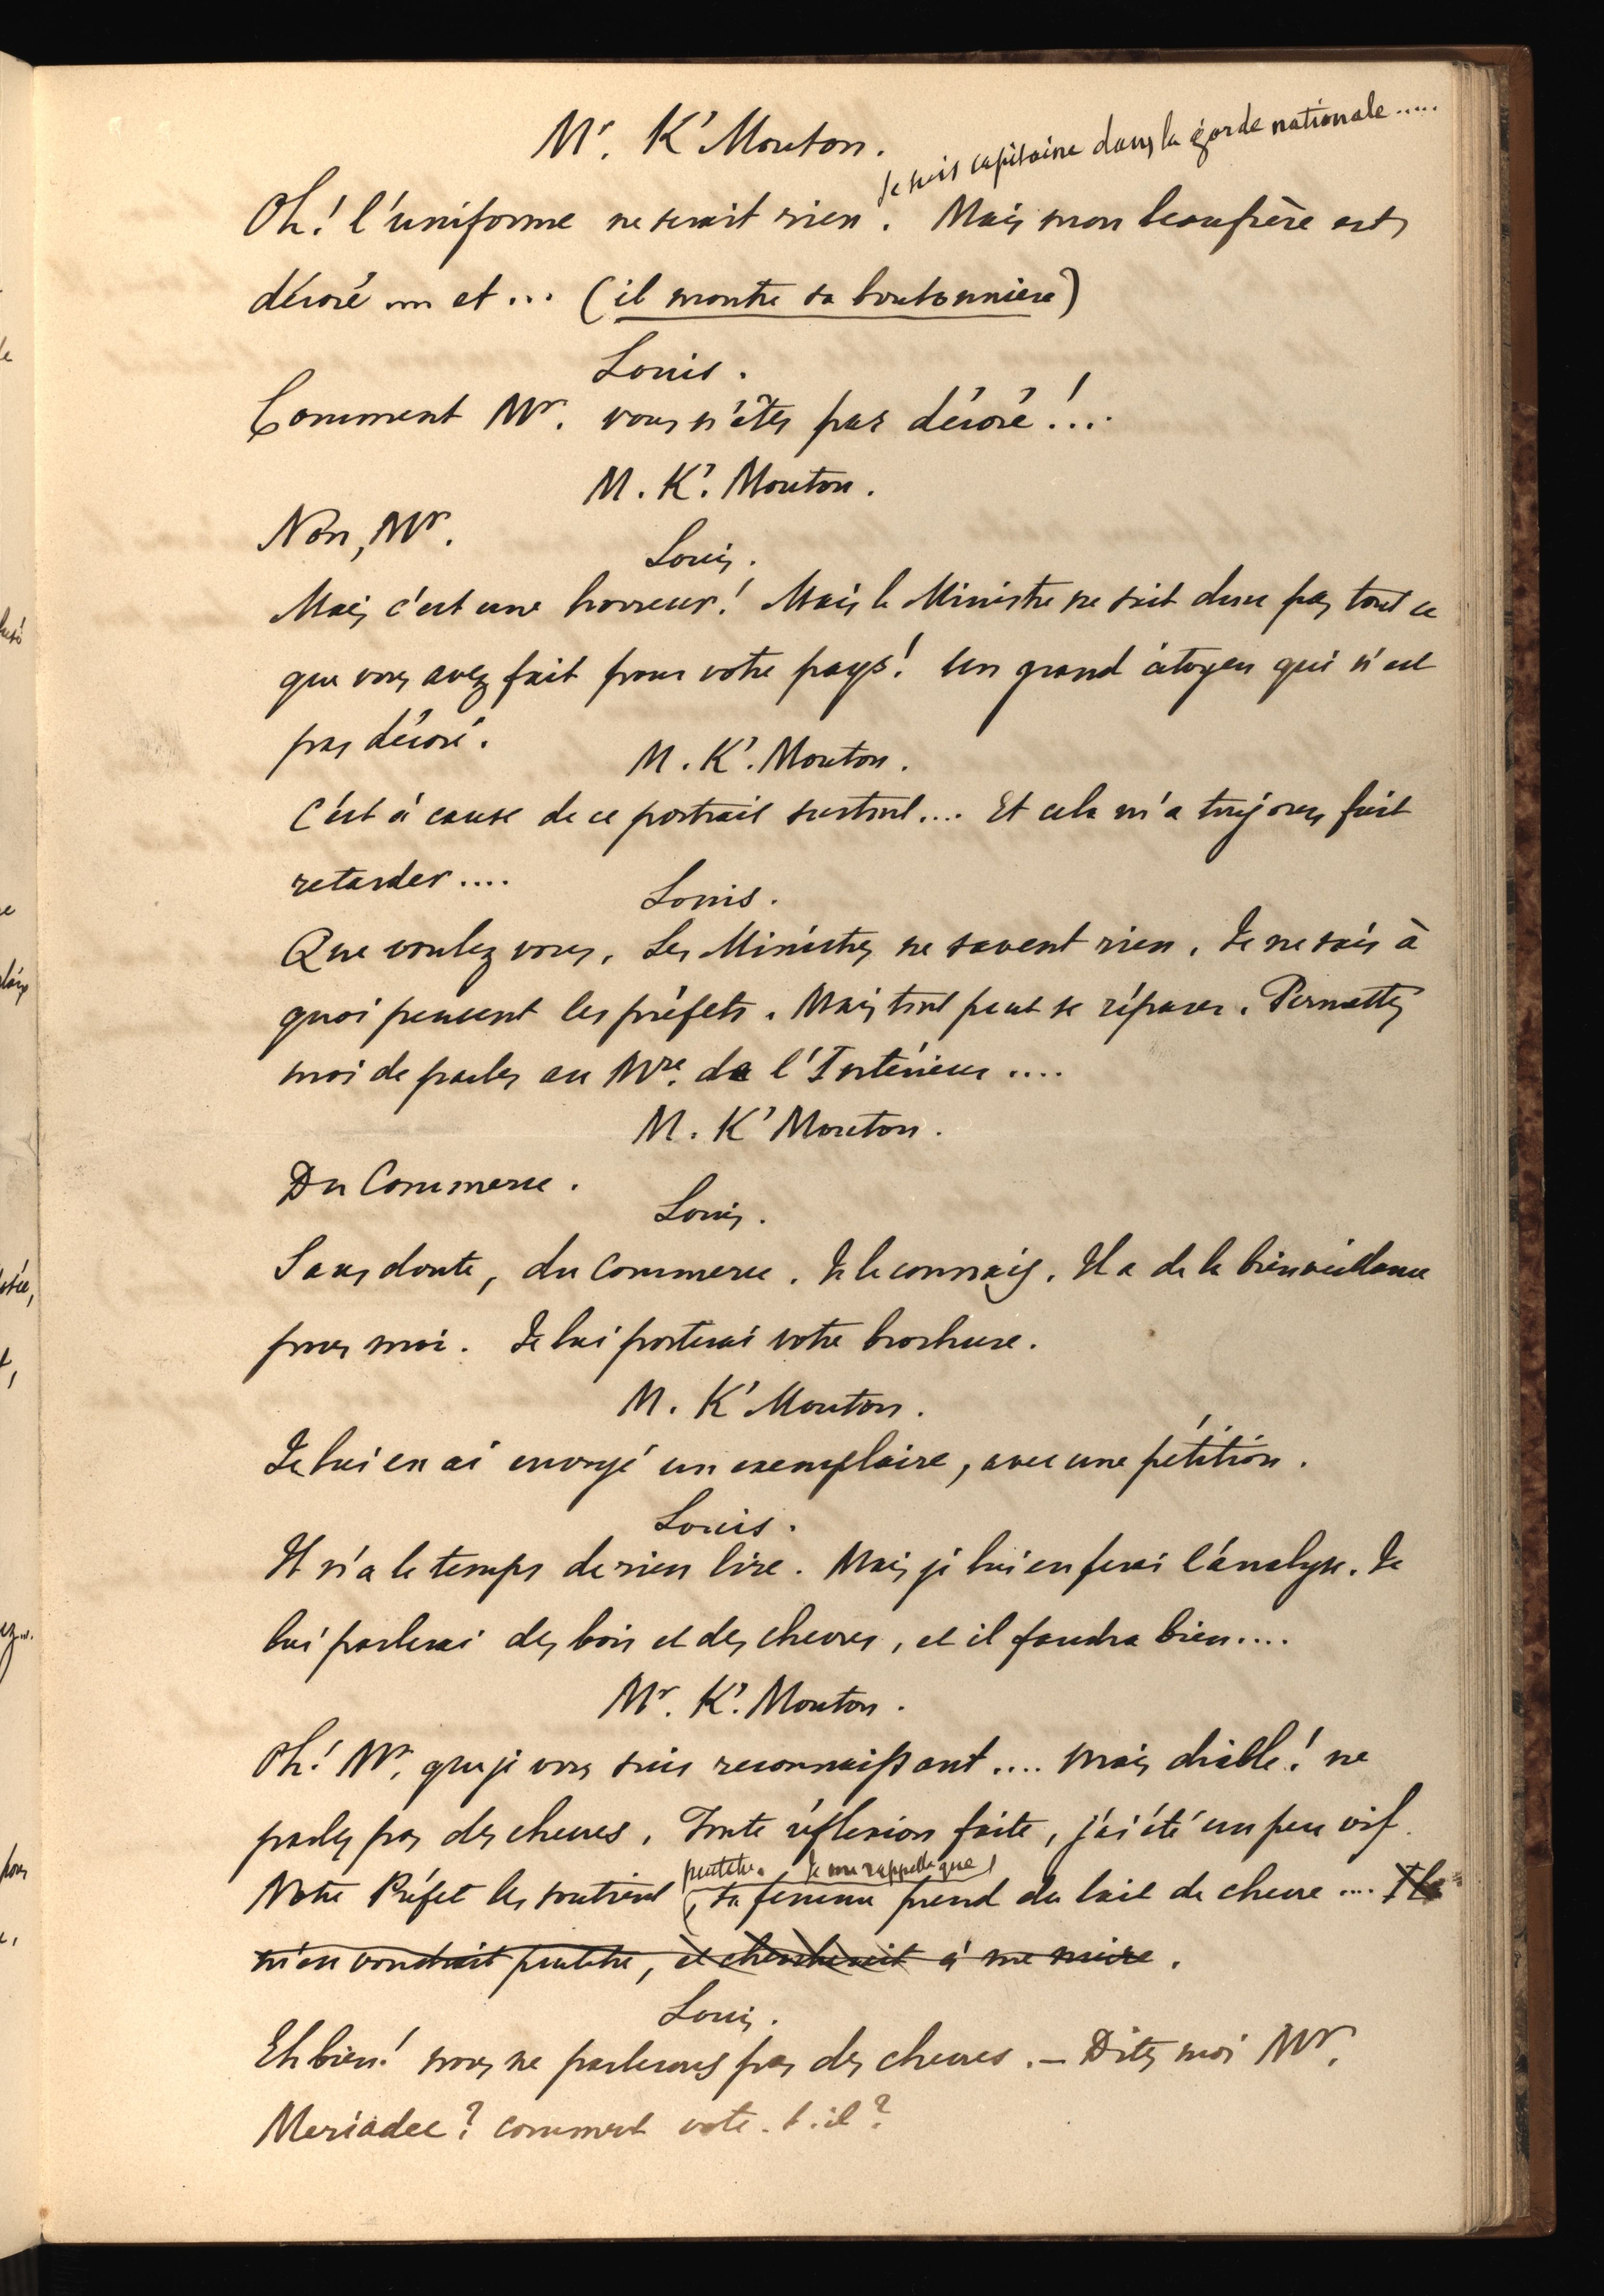 Mr. K' Mouton.
Je suis capitaine dans la garde nationale .....
Oh! l'uniforme ne serait rien. Mais mon beaufrère est
décoré .... et ... (il montre sa boutonniere)
Louis.
Comment Mr. vous n'êtes pas décoré!...
M. K'. Mouton.
Non, Mr.
Louis.
Mais c'est une horreur! Mais le Ministre ne sait donc pas tout ce
que vous avez fait pour votre pays! Un grand citoyen qui n'est
pas décoré.
M. K'. Mouton.
C'est à cause de ce portrait surtout.... Et cela m'a toujours fait
retarder....
Louis.
Que voulez vous. Les Ministres ne savent rien. Je ne sais à
quoi pensent les préfets. Mais tout peut se réparer. Permettez
moi de parler au Mre. de l'Intérieur ....
M. K' Mouton.
Du Commerce.
Louis.
Sans doute, du commerce. Je le connais. Il a de la bienveillance
pour moi. Je lui porterai votre brochure.
M. K' Mouton.
Je lui en ai envoyé un exemplaire, avec une pétition.
Louis.
Il n'a le temps de rien lire. Mais je lui en ferai l'analyse. Je
lui parlerai des bois et des chevres, et il faudra bien....
Mr. K'. Mouton.
Oh! Mr. que je vous suis reconnaissant .... mais diable! ne
parlez pas des chevres. Toute réflexion faite, j'ai été un peu vif.
peutetre. Je me rappelle que
Notre Préfet les soutient, sa femme prend du lait de chevre .... Il
m'en voudrait peutetre, et chercherait à me nuire.
Louis.
Eh bien! nous ne parlerons pas des chevres. — Dites moi Mr.
Meriadec? comment vote-t-il?